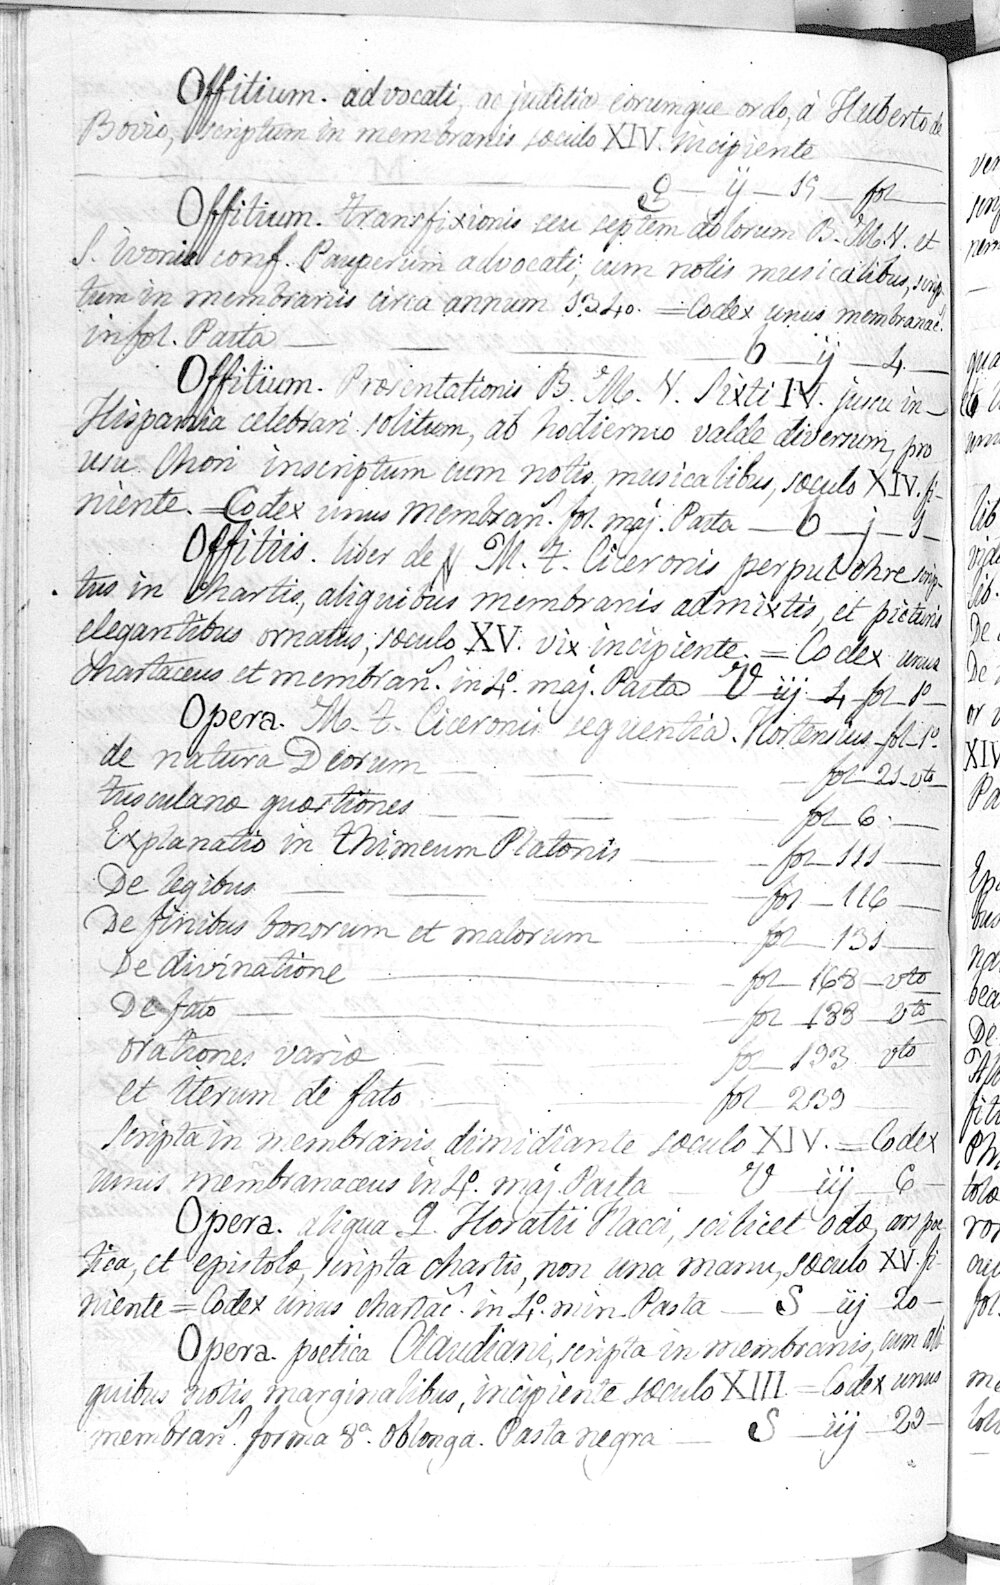 Offitium. advocati, ac juditia eorumque ordo, à Huberto de
Bovio, scriptum in membranis sæculo XIV. incipiente
Q — ij — 19 — fol
Offitium. transfixionis seu septem dolorum B. M. V. et
S. Ivonis conf. Pauperum advocati, cum notis musicalibus, scrip-
tum in membranis circa annum 1340. = Codex unus membranac.
in fol. Pasta — b — ij — 4 —
Offitium. Præsentationis B. M. V. Sixti IV. jussu in
Hispania celebrari solitum, ab hodierno valde diversum, pro
usu Chori inscriptum cum notis musicalibus, sæculo XIV. fi-
niente. = Codex unus membran. fol. maj. Pasta — b — j — 1 —
Offitiis. liber de M. T. Ciceronis perpulchre scrip-
tus in chartis, aliquibus membranis admixtis, et picturis
elegantibus ornatus, sæculo XV. vix incipiente. = Codex unus
chartaceus et membran. in 4º. maj. Pasta — V — iij — 4 — fol — 1º —
Opera. M. T. Ciceronis sequentia. Hortensius — fol — 1º.
de natura Deorum — fol — 21 — vto
tusculanæ quæstiones — fol — 6 —
Explanatio in thimeum Platonis — fol — 111 —
De legibus — fol — 116 —
De finibus bonorum et malorum — fol — 131 —
De divinatione — fol — 168 — vto
De fato — fol — 188 — vto
orationes variæ — fol — 193 vto
et iterum de fato — fol — 239
scripta in membranis dimidiante sæculo XIV. = Codex
unus membranaceus in 4º. maj. Pasta — V — iij — 6 —
Opera. aliqua Q. Horatii Flacci, scilicet odæ, ars poe-
tica, et epistolæ, scripta chartis, non una manu, sæculo XV. fi-
niente = Codex unus chartac. in 4º. min. Pasta — S — iij — 20 —
Opera. poetica Claudiani, scripta in membranis, cum ali-
quibus notis marginalibus, incipiente sæculo XIII = Codex unus
membran. forma 8ª. oblonga. Pasta negra — S — iij — 29 —